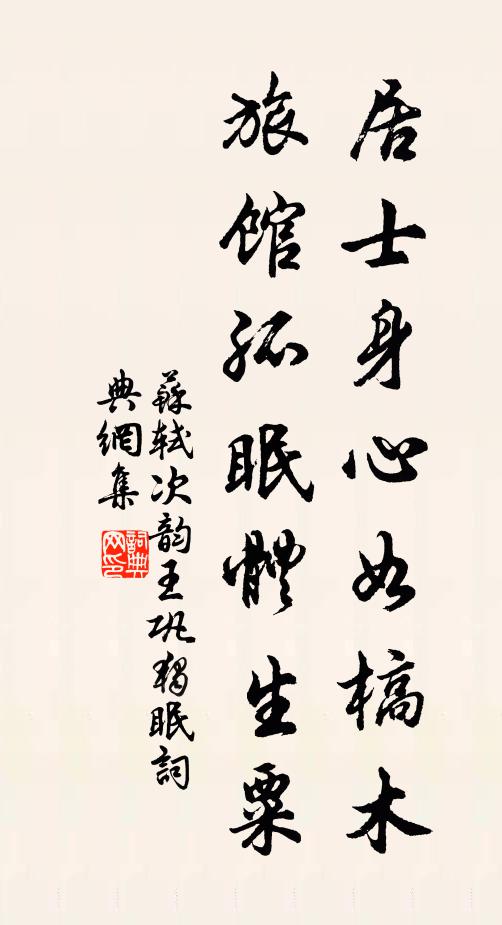 居士身心如槁木
旅館孤眠體生粟
蘇軾次韵王巩獨眠詞
典網集
詞典网印